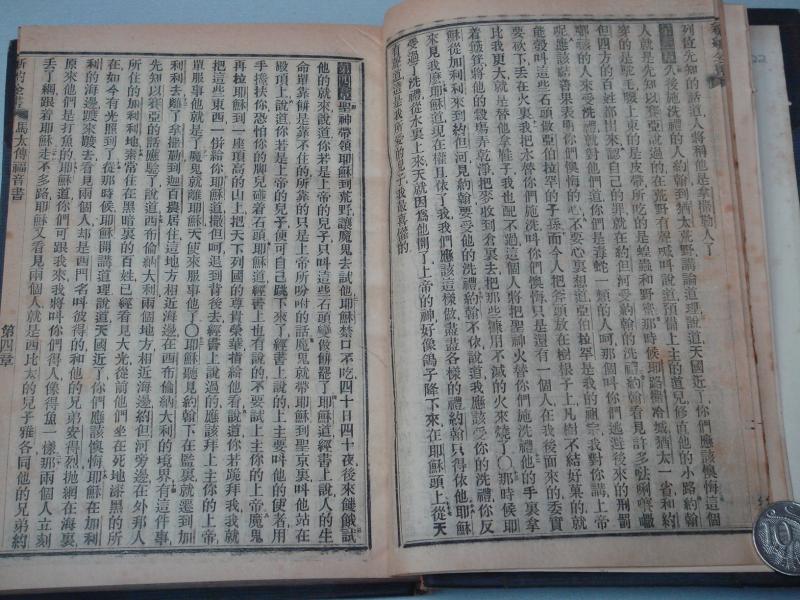 列位先知的話道人將稱他是拿撒勒人了
久後施洗禮的人約翰到猶太荒野講論道理說道天國近了你們應該懊悔這個
人就是先知以賽亞說過的在荒野有聲氣喊叫說道預備上主的道兒修直他的小路約翰
穿的是駝毛腰上束的是皮帶所吃的是蝗蟲和野蜜那時候耶路撒冷城猶太一省和約
但四方的百姓都出來認自己的罪就在約但河受約翰的洗禮約翰看見許多法利
嗄該的人來受洗禮就對他們道你們是毒蛇一類的人阿那個叫你們逃避後來的刑罰
呢應該結善果表明你們懊悔的心不要心裏想道亞伯拉罕是我的祖宗我對你講上帝
能彀叫這些石頭做亞伯拉罕的子孫而今人把斧頭放在樹根子上凡樹不結好果的就
要砍下丟在火裏我把水替你們施洗叫你們懊悔只是還有一個人在我後面來的委實
比我更大就是替他拿鞋子我也配不過這個人將把聖神火替你們施洗禮他的手裏拿
着簸箕將他的穀場弄乾淨把麥收到倉裏去把那些糠用不滅的火來燒了○那時候耶
穌從加利利來到約但河見約翰要受他的洗禮約翰不依你說道我應該受你的洗禮你反
來見我麼耶穌道現在權且依了我我們應該這樣做盡盡各樣的禮約翰只得依他耶穌
受過洗禮從水裏上來天就因爲他開了上帝的神好像鴿子降下來在耶穌頭上從天
有聲道這是我所愛的兒子我最喜懽的
第四章聖神帶領耶穌到荒野讓魔鬼去試他耶穌禁口不吃四十日四十夜後來饑餓試
他的就來說道你若是上帝的兒子只叫這些石頭變做餅罷了耶穌道經書上說人的生
命單靠餅是靠不住的只是上帝所吩咐的話魔鬼就帶耶穌到聖京裏叫他站在
殿頂上說道你若是上帝的兒子便可自己跳下來了經書上說的上主要叫他的使者用
手擡扶你恐怕你的腳兒碰着石頭耶穌道經書上也有說的不要試上主你的上帝魔鬼
再拉耶穌到一座頂高的山上把天下列國的尊貴榮華指給他看說道你若跪拜我我就
把這些東西一併給你耶穌道撒但呵是到背後去經書上說過的應該拜上主你的上帝
單單服事他就是了魔鬼就離耶穌天使來服事他了○耶穌聽見約翰下在監裏就還到加
利利去離了拿撒勒到迦百農居住這地方相近海邊在西布倫納大利的境界有這件事
先知以賽亞的話應驗了說道西布倫納大利兩個地方相近海邊約但河旁邊在外邦人
所住的加利利地素常住在黑暗裏的百姓已經看見大光從前他們坐在死地漆黑的所
在如今有光照到了從那時候耶穌開講道理說道天國近了你們應該懊悔耶穌在加利
利的海邊踱來踱去看見兩個人却是西門名叫彼得的和他的兄弟安得烈拋網在海裏
原來他們是打魚的耶穌道你們可跟我來我將叫你們得人像得魚一樣那兩個人立刻
丟了網跟着耶穌走不多路耶穌又看見兩個人就是西比太的兒子雅各同他的兄弟約
新約全書
馬太傳福音書
第四章
10